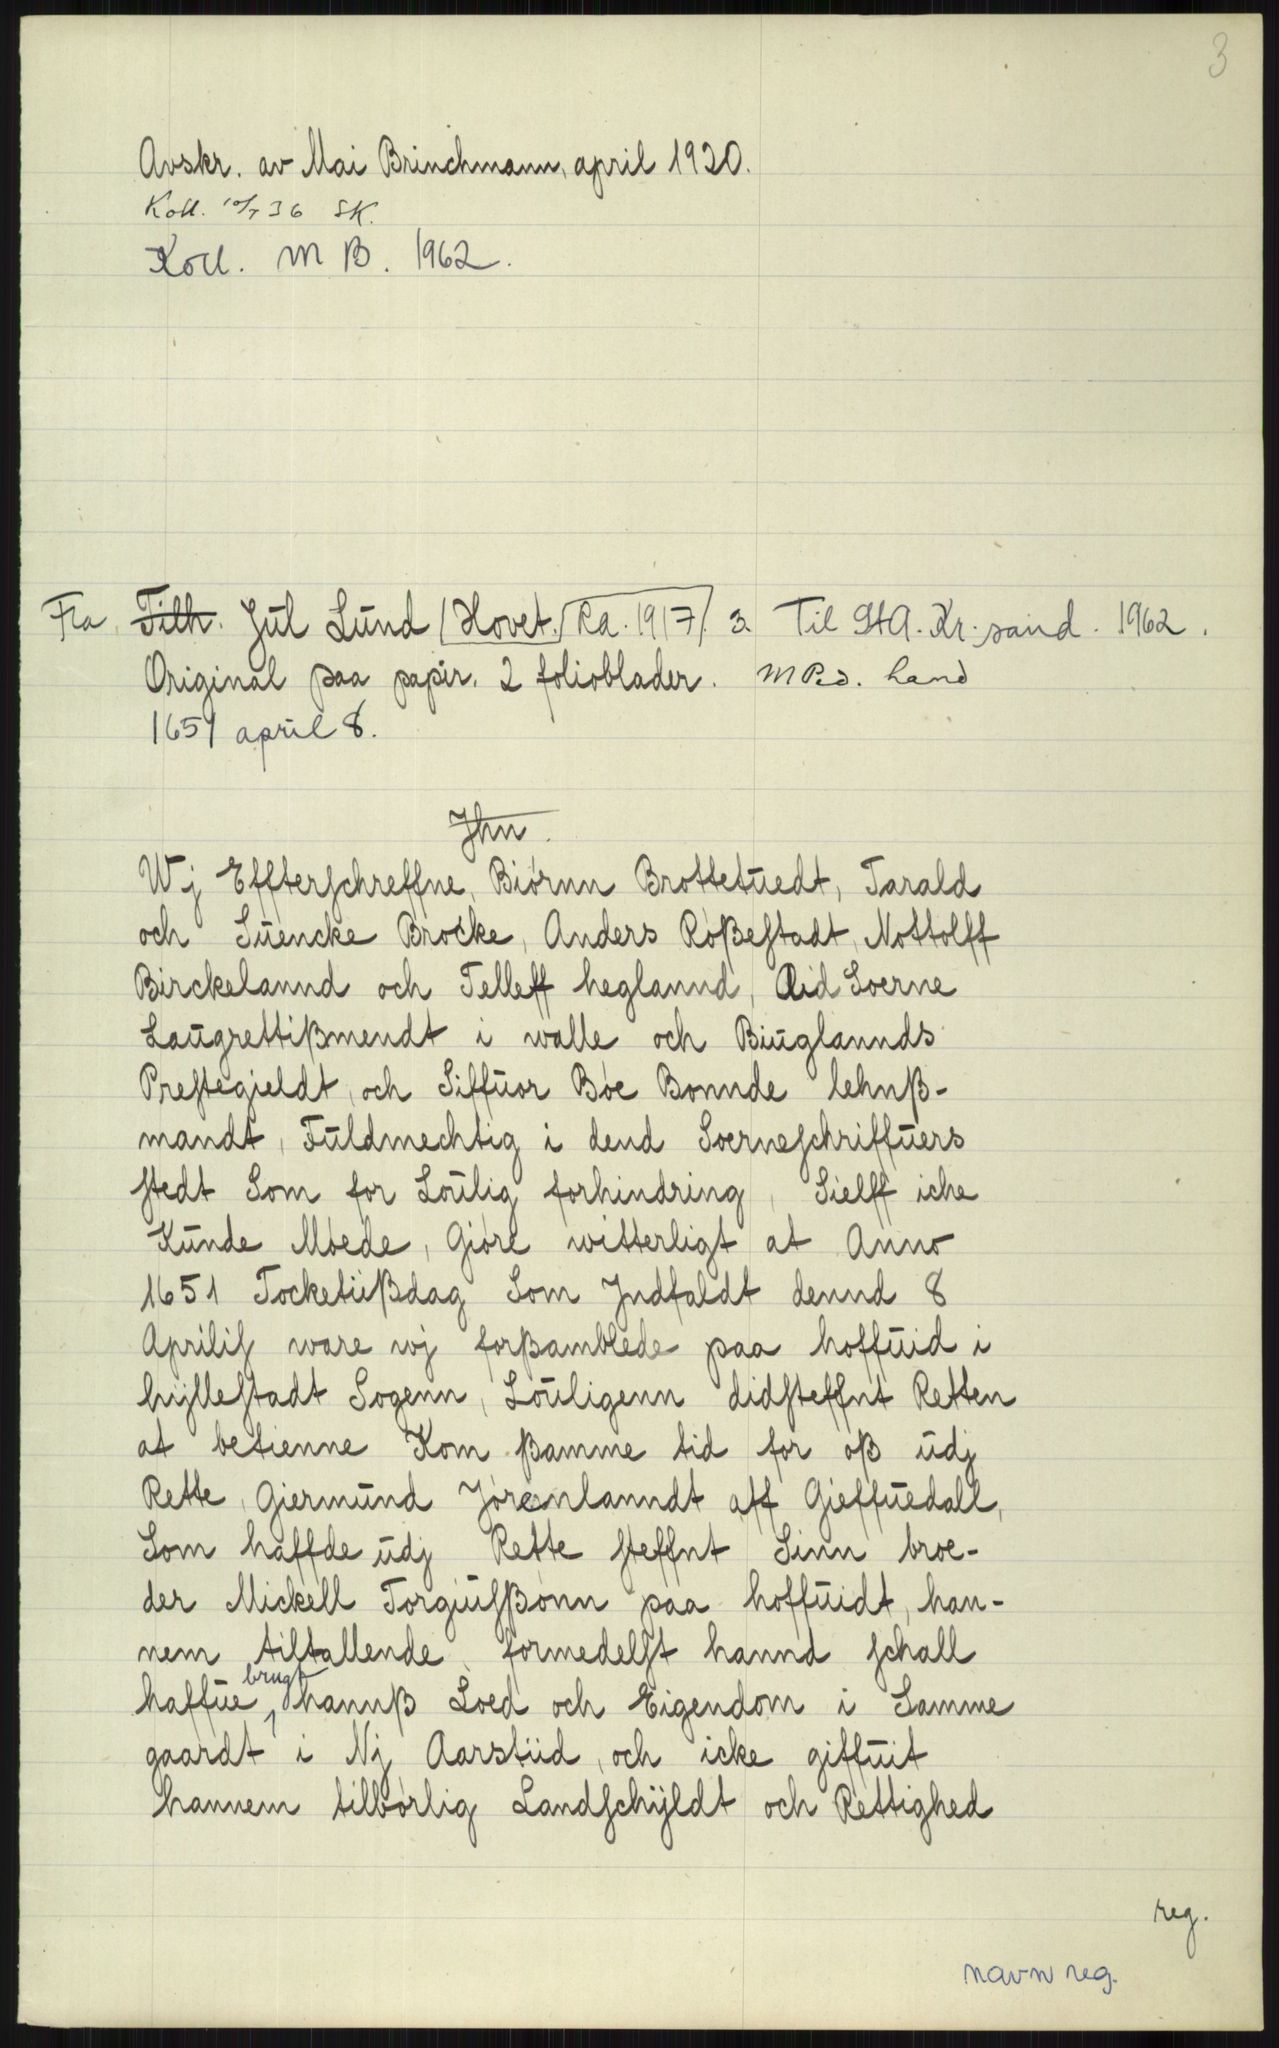 3
Avskr. av Mai Brinchmann, april 1920.
Koll. 10/7 36 SK.
Koll. M B. 1962.
Fra Tilh. Jul Lund (Hovet. Ra. 1917). 3. Til StA. Kr.sand. 1962.
Original paa papir. 2 folioblader. hand
1651 april 8.
Jhn.
Wj Effterschreffne, Biørnn Brottetuedt, Tarald
och Suencke Brocke, Anders Rößestadt, Nottolff
Birckelannd och Telleff heglannd, Aid Soerne
Laugrettißmendt i walle och Biuglannds
Prestegieldt, och Siffuor Bøe Bonnde lehnß-
mandt, Fuldmechtig i dend Soerneschriffuers
stedt Som for Loulig forhindring, Sielff iche
Kunde Møede, Giøre witterligt at Anno
1651 Tocketüßdag Som Jndfaldt dennd 8
Aprilis ware wj forßamblede paa hoffuid i
hyllestadt Sogenn, Louligenn didsteffnt Retten
at betienne Kom ßamme tid for oß udj
Rette, Giermund Jörenlanndt aff Gieffuedall,
Som haffde udj Rette steffnt Sinn broe-
der Mickell Torgiulßønn paa hoffuidt, han-
nem tiltallende, formedelst hannd schall
haffue brugt hannß Loed och Eigendom i Samme
gaardt i Nj Aarstiid, och icke giffuit
hannem tilbørlig Landschyldt och Rettighed
reg.
navn reg.